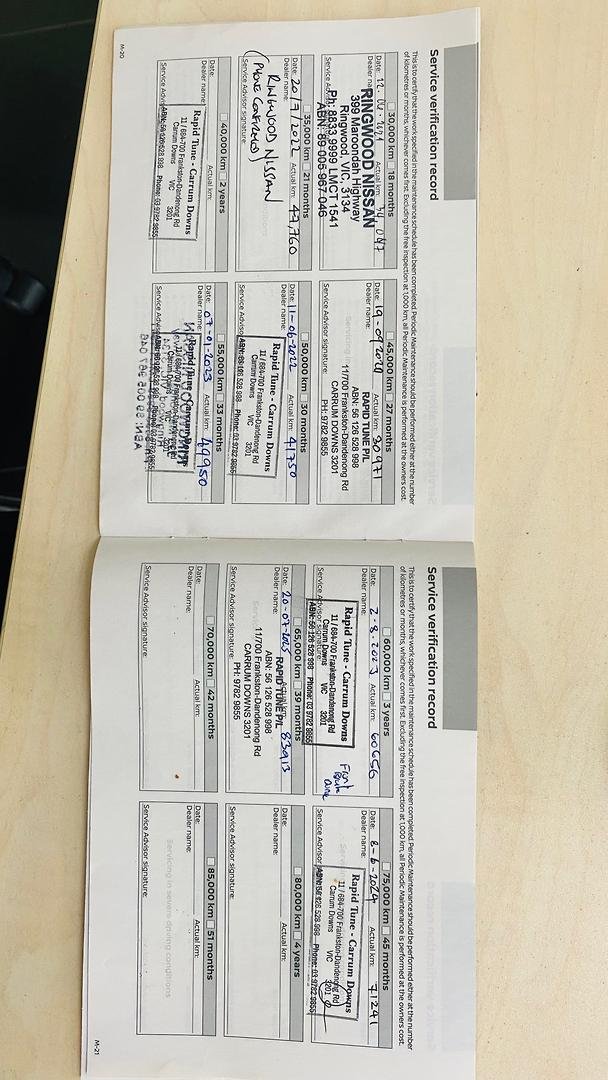 Service verification record
This is to certify that the work specified in the maintenance schedule has been completed. Periodic Maintenance should be performed either at the number
of kilometres or months, whichever comes first. Excluding the free inspection at 1,000 km, all Periodic Maintenance is performed at the owners cost.
30,000 km 18 months
Date: Actual km: 34 047
Dealer name:
RINGWOOD NISSAN
399 Maroondah Highway
Ringwood, VIC, 3134
Ph: 8833 9999 LMCT 1541
ABN: 69 005 967 046
35,000 km 21 months
Date: 20/7/2022 Actual km:
Dealer name:
RINGWOOD NISSAN
(PHONE CONFIRMED)
Service Advisor signature:
40,000 km 2 years
Date: Actual km:
Dealer name:
Rapid Tune - Carrum Downs
11 / 684-700 Frankston-Dandenong Rd
Carrum Downs VIC 3201
ABN: 56 126 528 998 Phone: 03 9782 9855
M-20
45,000 km 27 months
Date: Actual km:
Dealer name:
RAPID TUNE P/L
ABN: 56 126 528 998
11/700 Frankston-Dandenong Rd
CARRUM DOWNS 3201
PH: 9782 9855
Service Advisor signature:
50,000 km 30 months
Date: 11-06-2022 Actual km: 41750
Dealer name:
Rapid Tune - Carrum Downs
11 / 684-700 Frankston-Dandenong Rd
Carrum Downs VIC 3201
ABN: 56 126 528 998 Phone: 03 9782 9855
Service Advisor
55,000 km 33 months
Date: 07-01-2023 Actual km: 49950
Dealer name:
Service Advisor
Service verification record
This is to certify that the work specified in the maintenance schedule has been completed. Periodic Maintenance should be performed either at the number
of kilometres or months, whichever comes first. Excluding the free inspection at 1,000 km, all Periodic Maintenance is performed at the owners cost.
60,000 km 3 years
Date: 2-8-2023 Actual km: 60656
Dealer name:
Rapid Tune - Carrum Downs
11 / 684-700 Frankston-Dandenong Rd
Carrum Downs VIC 3201
ABN: 56 126 528 998 Phone: 03 9782 9855
Service Advisor signature:
65,000 km 39 months
Date: 20-07-2025 Actual km: 83913
Dealer name:
RAPID TUNE P/L
ABN: 56 126 528 998
11/700 Frankston-Dandenong Rd
CARRUM DOWNS 3201
PH: 9782 9855
Service Advisor signature:
70,000 km 42 months
Date: Actual km:
Dealer name:
Service Advisor signature:
75,000 km 45 months
Date: 8-6-2024 Actual km: 71241
Dealer name:
Rapid Tune - Carrum Downs
11 / 684-700 Frankston-Dandenong Rd
Carrum Downs VIC 3201
ABN: 56 126 528 998 Phone: 03 9782 9855
Service Advisor
80,000 km 4 years
Date: Actual km:
Dealer name:
Service Advisor signature:
85,000 km 51 months
Date: Actual km:
Dealer name:
Service Advisor signature:
M-21